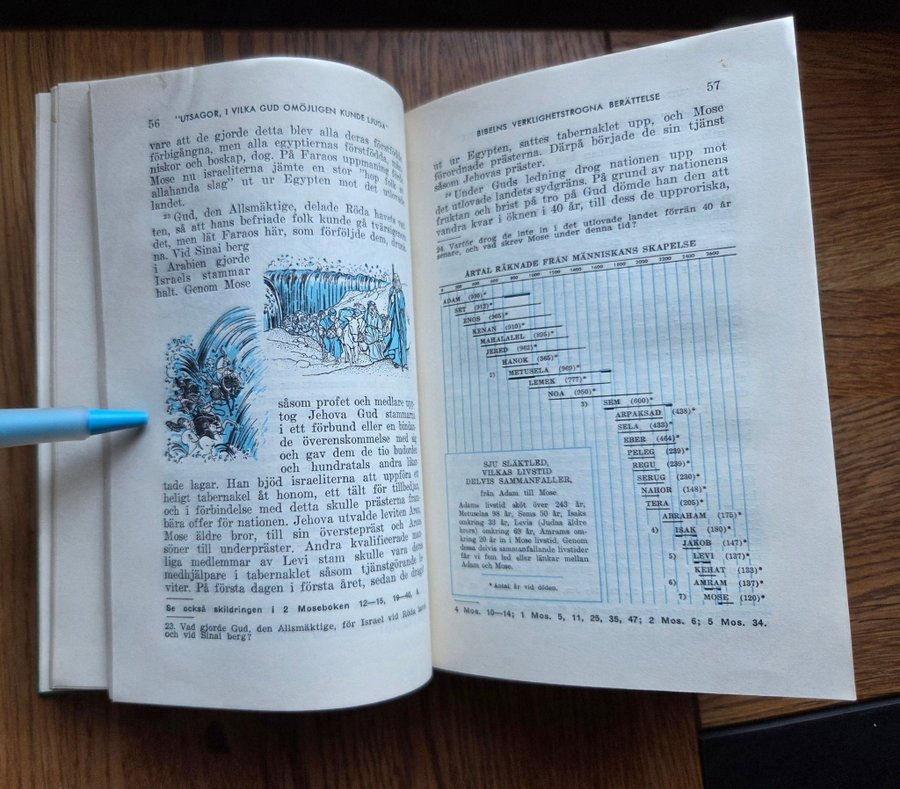 56 "UTSAGOR, I VILKA GUD OMÖJLIGEN KUNDE LJUGA"
vare att de gjorde detta blev alla deras förstfödda
förbigångna, men alla egyptiernas förstfödda,
niskor och boskap, dog. På Faraos uppmaning
Mose nu israeliterna jämte en stor "hop folk av
allahanda slag" ut ur Egypten mot det utlovade
landet.
23 Gud, den Allsmäktige, delade Röda havets vat-
ten, så att hans befriade folk kunde gå tvärsigenom
det, men lät Faraos här, som förföljde dem, drunk-
na. Vid Sinai berg
i Arabien gjorde
Israels stammar
halt. Genom Mose
såsom profet och medlare upp-
tog Jehova Gud stammarna
i ett förbund eller en bindan-
de överenskommelse med sig
och gav dem de tio budorden
och hundratals andra likar-
tade lagar. Han bjöd israeliterna att uppföra ett
heligt tabernakel åt honom, ett tält för tillbedjan,
och i förbindelse med detta skulle prästerna fram-
bära offer för nationen. Jehova utvalde leviten Aron,
Mose äldre bror, till sin överstepräst och Arons
söner till underpräster. Andra kvalificerade man-
liga medlemmar av Levi stam skulle vara deras
medhjälpare i tabernaklet såsom tjänstgörande le-
viter. På första dagen i första året, sedan de dragit
Se också skildringen i 2 Moseboken 12—15, 19—40,
23. Vad gjorde Gud, den Allsmäktige, för Israel vid Röda havet
och vid Sinai berg?
BIBELNS VERKLIGHETSTROGNA BERÄTTELSE 57
ut ur Egypten, sattes tabernaklet upp, och Mose
förordnade prästerna. Därpå började de sin tjänst
såsom Jehovas präster.
24 Under Guds ledning drog nationen upp mot
det utlovade landets sydgräns. På grund av nationens
fruktan och brist på tro på Gud dömde han den att
vandra kvar i öknen i 40 år, till dess de upproriska,
24. Varför drog de inte in i det utlovade landet förrän 40 år
senare, och vad skrev Mose under denna tid?
ÅRTAL RÄKNADE FRÅN MÄNNISKANS SKAPELSE
0 200 400 600 800 1000 1200 1400 1600 1800 2000 2200 2400 2600
ADAM (930)*
SET (912)*
ENOS (905)*
KENAN (910)*
MAHALALEL (895)*
JERED (962)*
HANOK (365)*
2) METUSELA (969)*
LEMEK (777)*
NOA (950)*
3) SEM (600)*
ARPAKSAD (438)*
SELA (433)*
EBER (464)*
PELEG (239)*
REGU (239)*
SERUG (230)*
NAHOR (148)*
TERA (205)*
ABRAHAM (175)*
4) ISAK (180)*
JAKOB (147)*
5) LEVI (137)*
KEHAT (133)*
6) AMRAM (137)*
7) MOSE (120)*
SJU SLÄKTLED,
VILKAS LIVSTID
DELVIS SAMMANFALLER,
från Adam till Mose
Adams livstid sköt över 243 år,
Metuselas 98 år, Sems 50 år, Isaks
omkring 33 år, Levis (Judas äldre
brors) omkring 69 år, Amrams om-
kring 20 år in i Mose livstid. Genom
dessa delvis sammanfallande livstider
får vi fem led eller länkar mellan
Adam och Mose.
* Antal år vid döden.
4 Mos. 10—14; 1 Mos. 5, 11, 25, 35, 47; 2 Mos. 6; 5 Mos. 34.